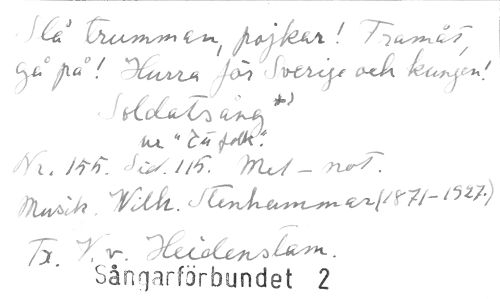 Slå trumman, pojkar! Framåt,
gå på! Hurra för Sverige och kungen!
Soldatsång *)
ur "Ett folk".
Nr. 155. Sid. 115. Mel-not.
Musik. Wilh. Stenhammar (1871-1927.)
Tx. V. v. Heidenstam.
Sångarförbundet 2